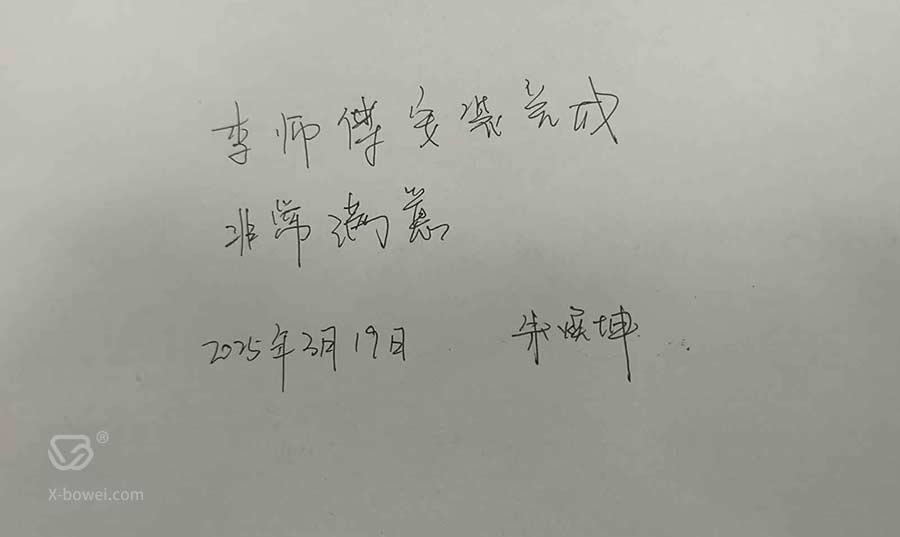 李师傅安装完成
非常满意
2025年3月19日 朱 坤
®
X-bowei.com